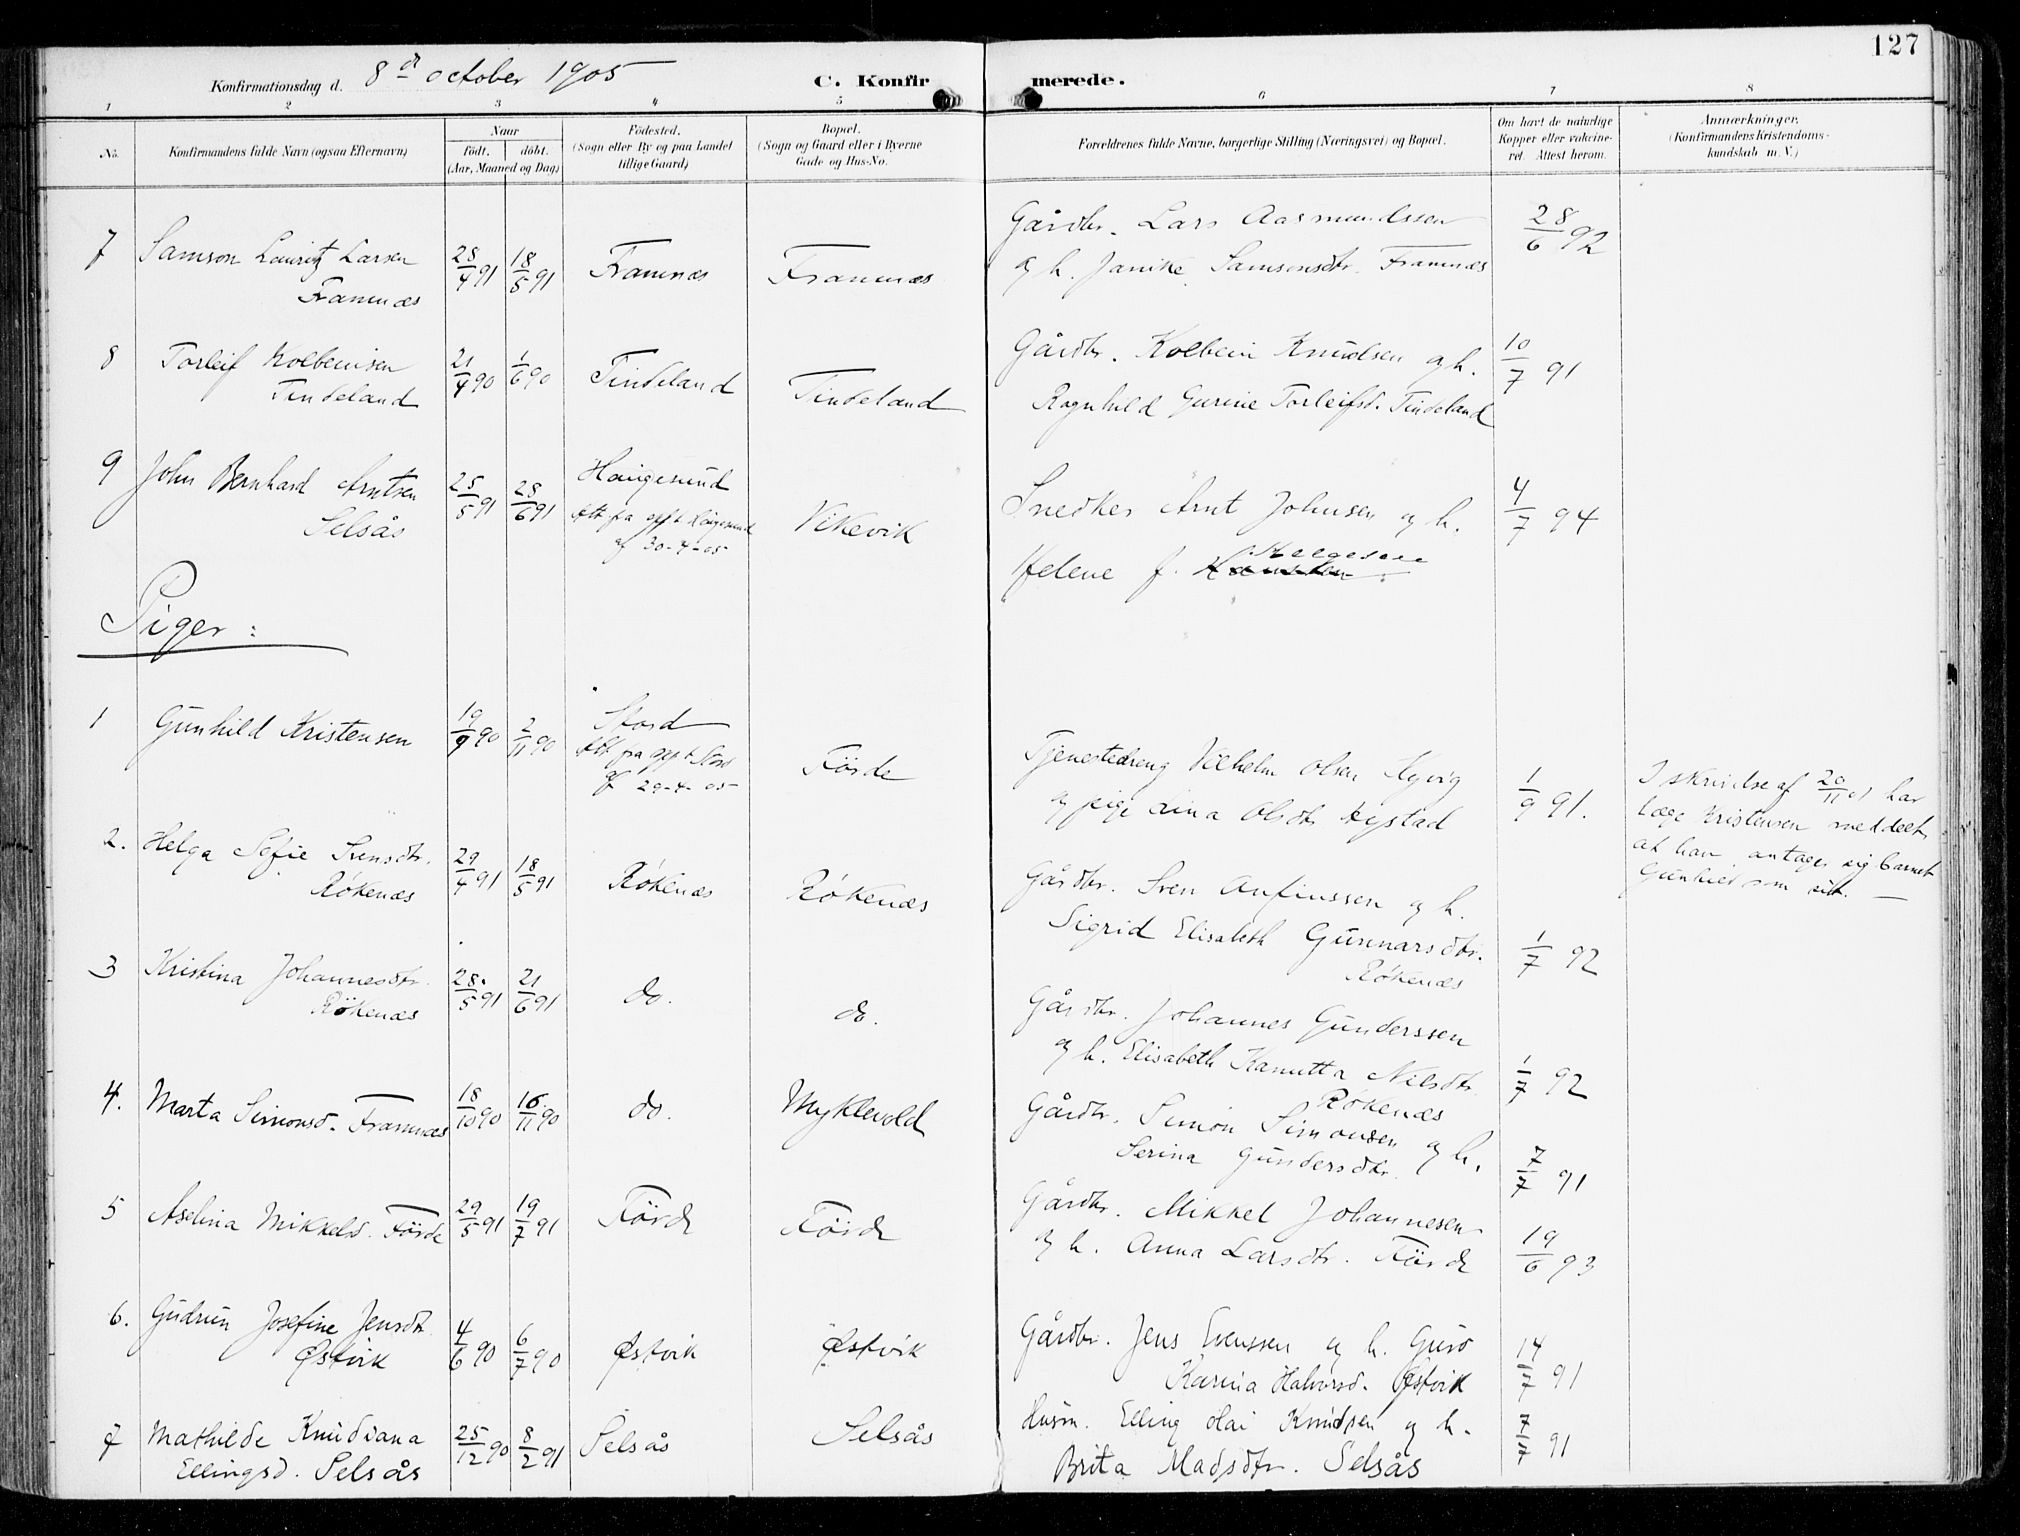 127
Konfirmationsdag d. 8de october 1905
C. Konfirmerede.
1 2 3 4 5 6 7 8
No.
Konfirmandens fulde Navn (ogsaa Efternavn)
Naar
født. døbt.
(Aar, Maaned og Dag)
Fødested.
(Sogn eller By og paa Landet
tillige Gaard)
Bopæl.
(Sogn og Gaard eller i Byerne
Gade og Hus-No.
Forældrenes fulde Navne, borgerlige Stilling (Næringsvei) og Bopæl.
Om havt de naturlige
Kopper eller vakcine-
ret. Attest herom.
Anmærkninger.
(Konfirmandens Kristendoms-
kundskab m. V.)
7 Samson Lauritz Larsen
Framnæs
28/4 91 18/5 91 Framnæs Framnæs
Gårdbr. Lars Aasmundssen
og h. Janike Samsonsdtr. Framnæs
28/6 92
8 Torleif Kolbeinsen
Tindeland
21/4 90 1/6 90 Tindeland Tindeland
Gårdbr. Kolbein Knudsen og h.
Ragnhild Gurine Torleifsd. Tindeland
10/7 91
9 John Bernhard Arntsen
Selsås
25/5 91 28/6 91
Haugesund
Att fra spt Haugesund
af 30-4-05
Vikevik
Snedker Arnt Johnsen og h.
Helene f.
4/7 94
Piger:
1 Gunhild Kristensen
19/9 90 2/11 90
Stord
Att fra spt Stord
af 29-4-05
Førde
Tjenestedreng Vilhelm Olsen
og pige Lina Olsdtr
1/9 91.
I skrivelse af 20/11 01 har
læge Kristensen meddelt,
at han antager sig barnet
Gunhild som sit. —
2. Helga Sofie Svensdtr.
Røkenæs
29/4 91 18/5 91 Røkenæs Røkenæs
Gårdbr. Sven Anfinssen og h.
Sigrid Elisabeth Gunnarsdtr.
Røkenæs
1/7 92
3 Kristina Johannesdtr.
Røkenæs
28/5 91 21/6 91 do. do.
Gårdbr. Johannes Gunderssen
og h. Elisabeth Kanutta Nilsdtr.
Røkenæs
1/7 92
4. Marta Simonsd. Framnæs
18/10 90 16/11 90 do. Myklevold
Gårdbr. Simon Simonsen og h.
Serina Gundersdtr.
7/7 91
5 Aselina Mikkelsd. Førde
29/5 91 19/7 91 Førde Førde
Gårdbr. Mikkel Johannesen
og h. Anna Larsdtr. Førde
19/6 93
6. Gudrun Josefine Jensdtr
Østvik
4/6 90 6/7 90 Østvik Østvik
Gårdbr. Jens Evenssen og h. Guro
Karina Halvorsd. Østvik
14/7 91
7 Mathilde Knudiana
Ellingsd. Selsås
25/12 90 8/2 91 Selsås Selsås
Husm. Elling Olai Knudsen og h.
Brita Madsdtr. Selsås
7/7 91